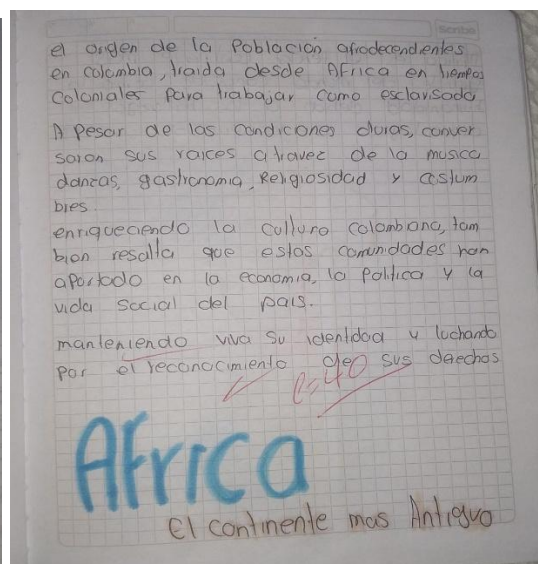 Scribe
el origen de la Población afrodecendientes
en colombia, traida desde AFrica en tiempos
Coloniales para trabajar como esclavisada
A Pesar de las condicones duras, conver
saron sus raices atravez de la musica
danzas, gastronomia, Religiosidad y costum
bres.
enriqueciendo la cultura colombiana, tam
bien resalta que estas comunidades han
aportado en la economia, la Politica y la
vida social del pais.
manteniendo viva su identidad y luchando
por el reconocimiento de sus derechos
AFrica
El continente mas Antiguo